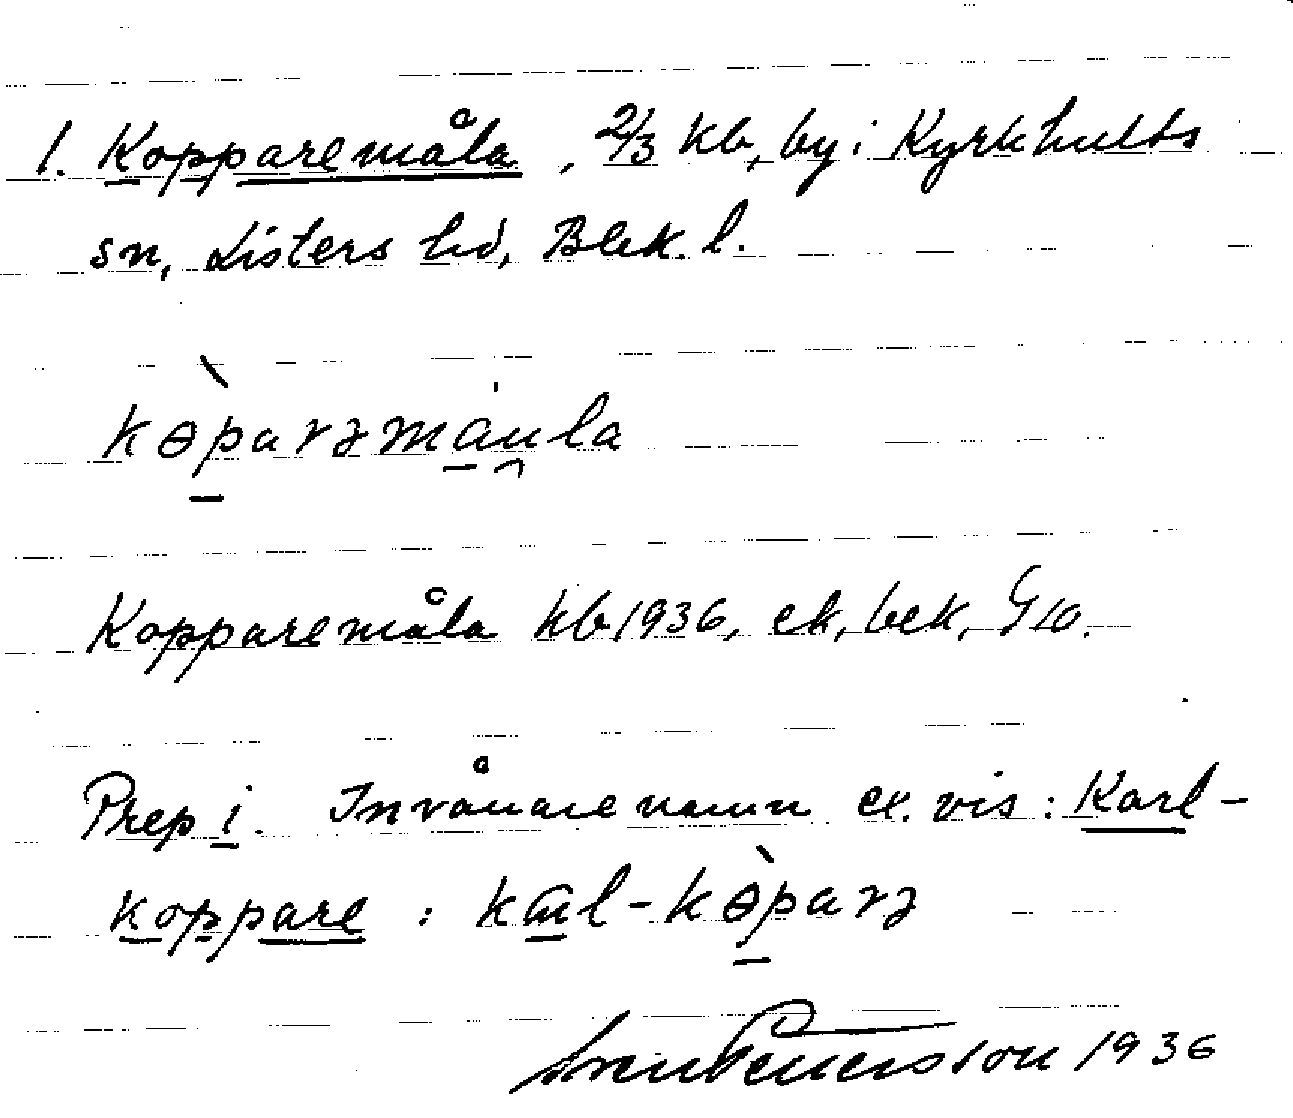 1. Kopparemåla, 2/3 kb, by i Kyrkhults
sn, Listers hd, Blek. l.
kɵparəmau̯la
Kopparemåla kb 1936, ek, bek, G 10.
Prep i. Invånarenamn ex. vis: Karl-
koppare : kɑl-kɵparə
Sven Benson 1936